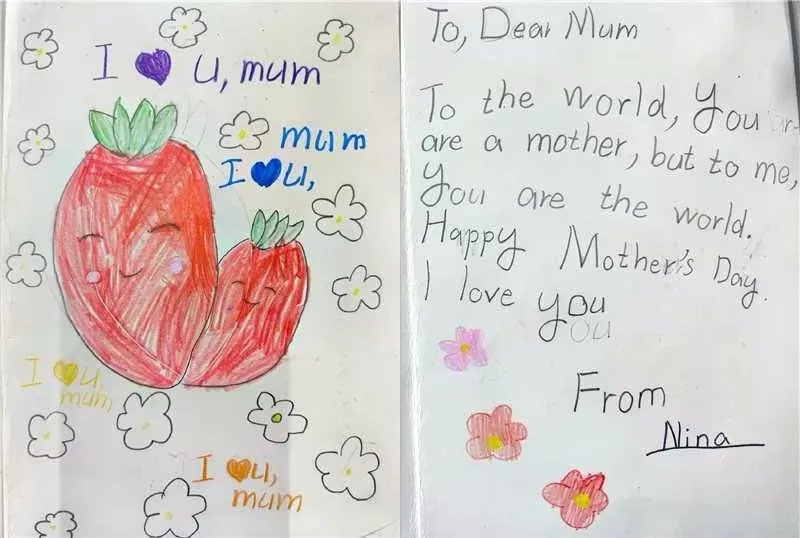 I ♥ U, mum
mum
I ♥ U,
I ♥ U,
mum
I ♥ U,
mum
To, Dear Mum
To the world, you
are a mother, but to me,
you are the world.
Happy Mother's Day.
I love you
From
Nina